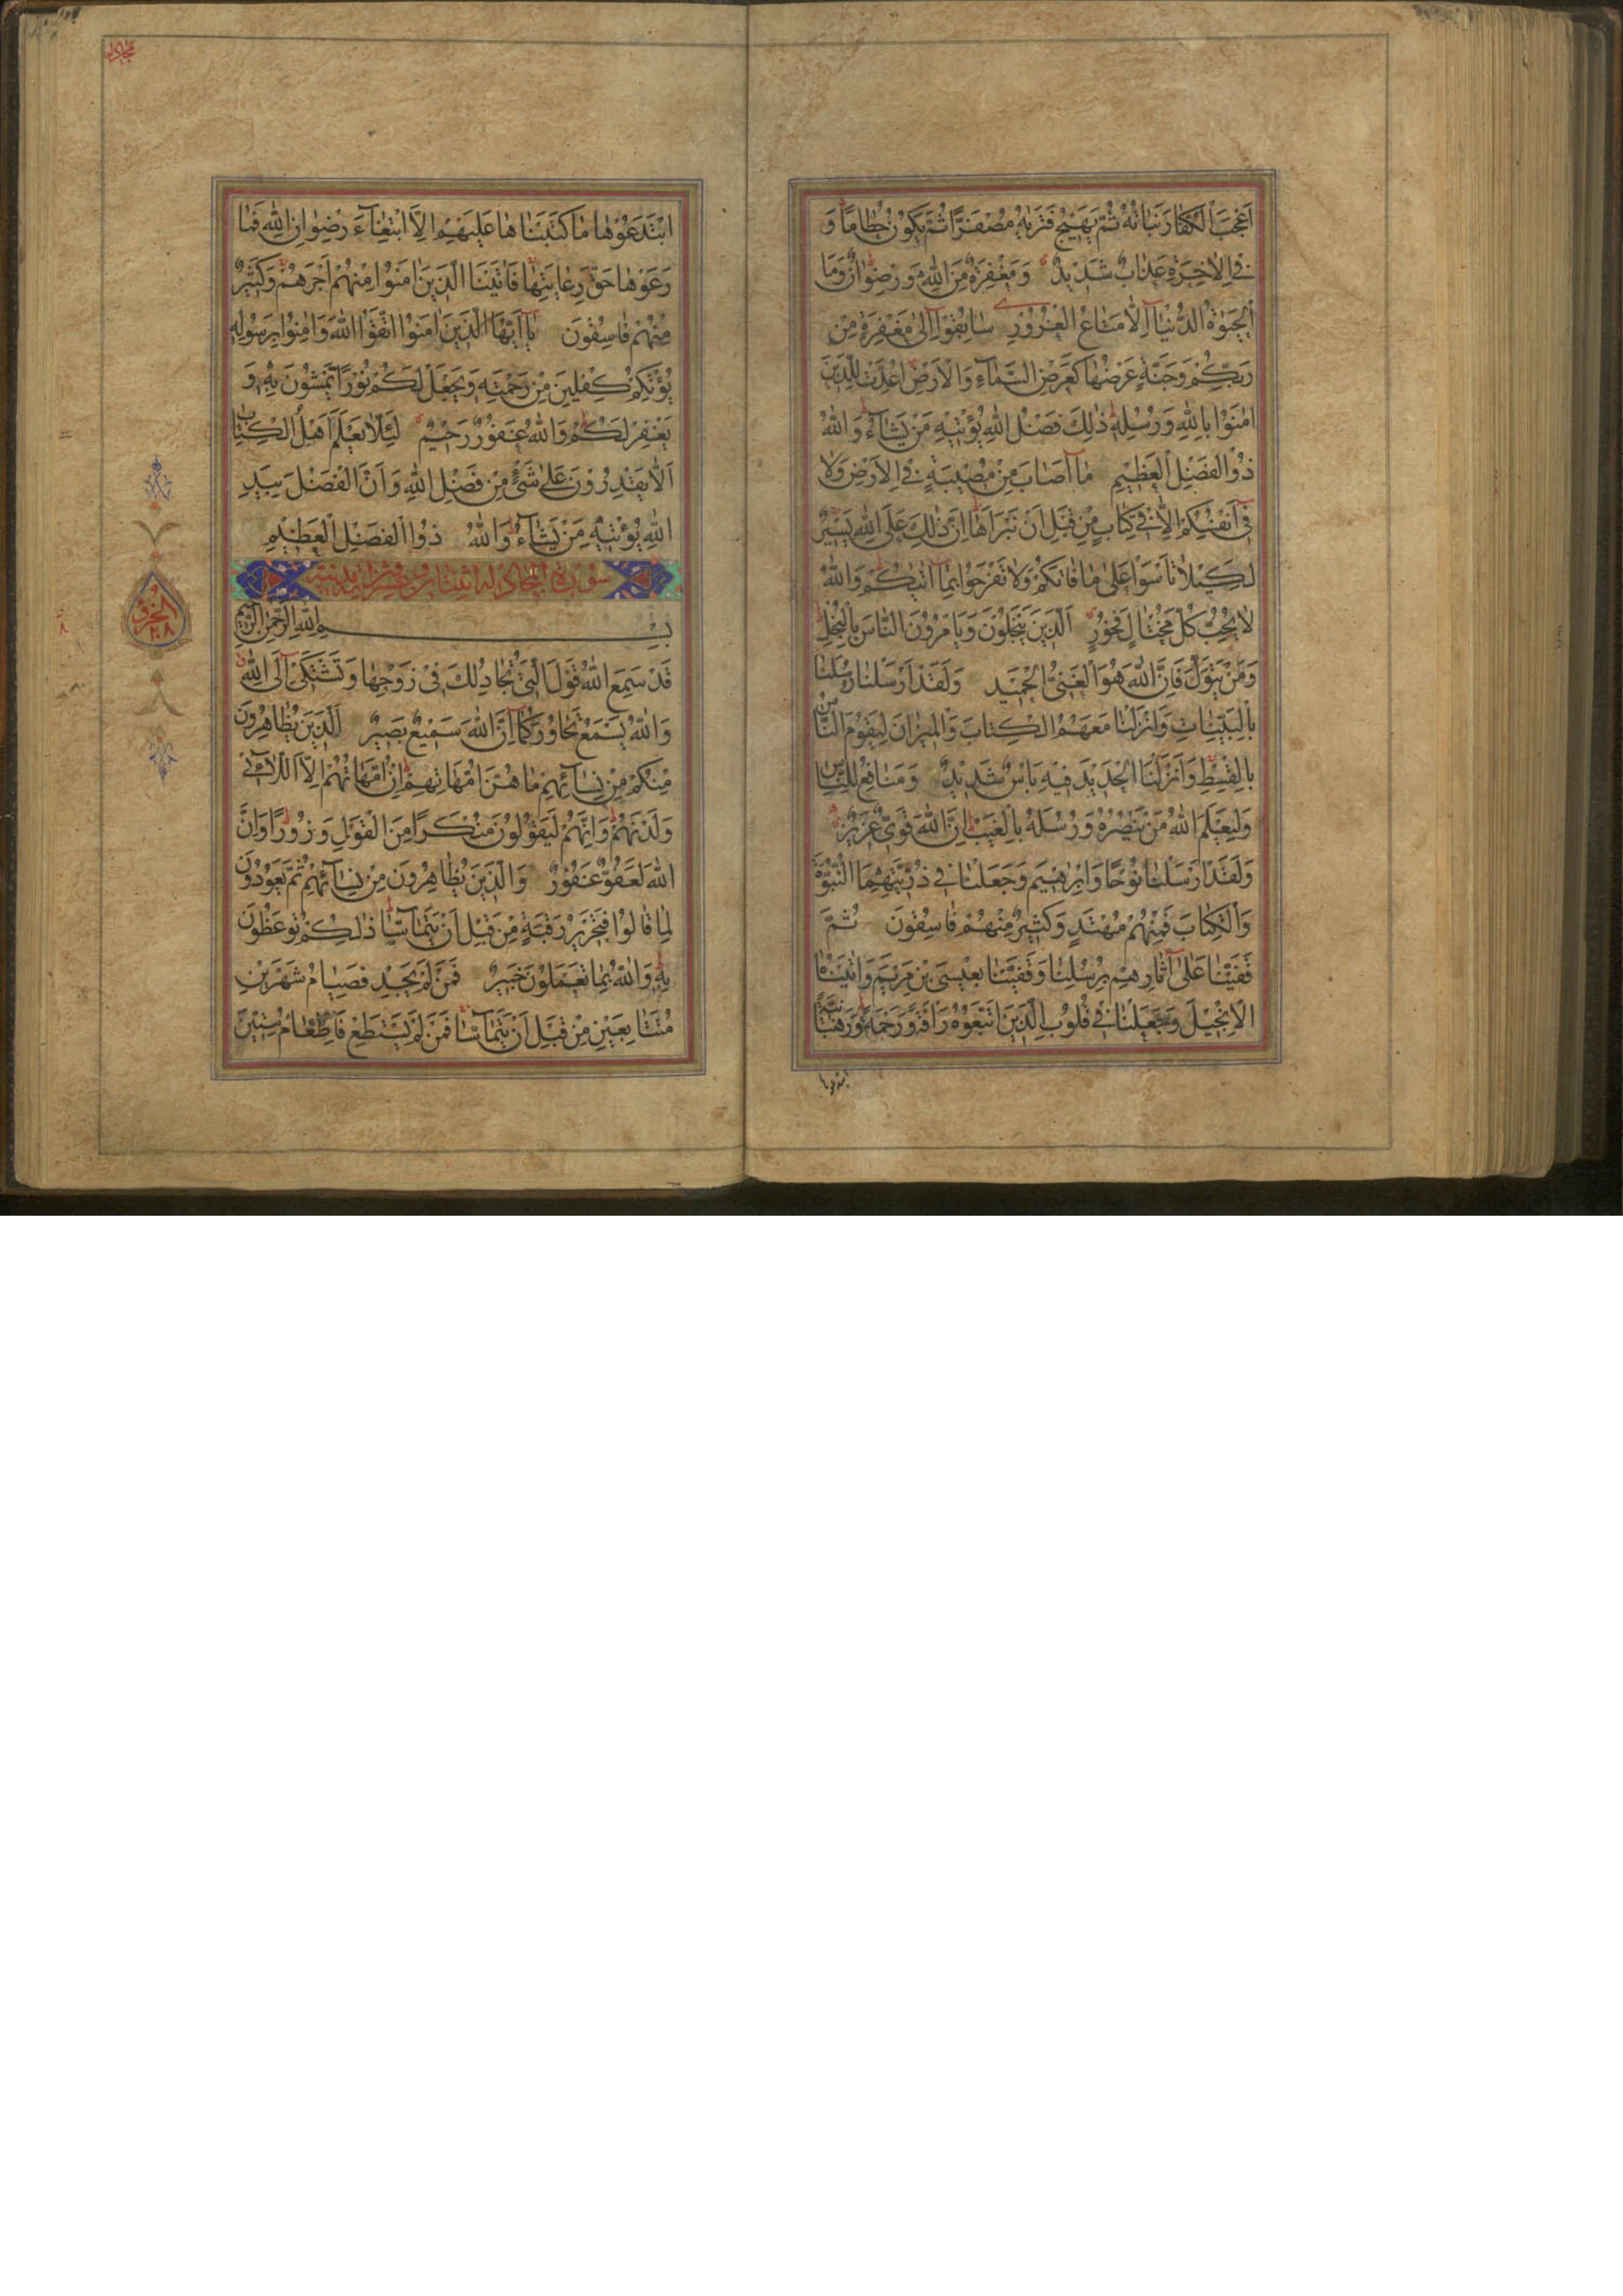 اَعْجَبَ الْكُفَّارَ نَبَاتُهُ ثُمَّ يَهِيجُ فَتَرٰيهُ مُصْفَرًّا ثُمَّ يَكُونُ حُطَامًا وَ
فِي الْاٰخِرَةِ عَذَابٌ شَدِيدٌ وَمَغْفِرَةٌ مِنَ اللّٰهِ وَرِضْوَانٌ وَمَا
الْحَيٰوةُ الدُّنْيَا اِلَّا مَتَاعُ الْغُرُورِ سَابِقُوا اِلٰى مَغْفِرَةٍ مِنْ
رَبِّكُمْ وَجَنَّةٍ عَرْضُهَا كَعَرْضِ السَّمَاءِ وَالْاَرْضِ اُعِدَّتْ لِلَّذِينَ
اٰمَنُوا بِاللّٰهِ وَرُسُلِهِ ذٰلِكَ فَضْلُ اللّٰهِ يُؤْتِيهِ مَنْ يَشَاءُ وَاللّٰهُ
ذُو الْفَضْلِ الْعَظِيمِ مَا اَصَابَ مِنْ مُصِيبَةٍ فِي الْاَرْضِ وَلَا
فِي اَنْفُسِكُمْ اِلَّا فِي كِتَابٍ مِنْ قَبْلِ اَنْ نَبْرَاَهَا اِنَّ ذٰلِكَ عَلَى اللّٰهِ يَسِيرٌ
لِكَيْلَا تَاْسَوْا عَلٰى مَا فَاتَكُمْ وَلَا تَفْرَحُوا بِمَا اٰتٰيكُمْ وَاللّٰهُ
لَا يُحِبُّ كُلَّ مُخْتَالٍ فَخُورٍ اَلَّذِينَ يَبْخَلُونَ وَيَاْمُرُونَ النَّاسَ بِالْبُخْلِ
وَمَنْ يَتَوَلَّ فَاِنَّ اللّٰهَ هُوَ الْغَنِيُّ الْحَمِيدُ وَلَقَدْ اَرْسَلْنَا رُسُلَنَا
بِالْبَيِّنَاتِ وَاَنْزَلْنَا مَعَهُمُ الْكِتَابَ وَالْمِيزَانَ لِيَقُومَ النَّاسُ
بِالْقِسْطِ وَاَنْزَلْنَا الْحَدِيدَ فِيهِ بَاْسٌ شَدِيدٌ وَمَنَافِعُ لِلنَّاسِ
وَلِيَعْلَمَ اللّٰهُ مَنْ يَنْصُرُهُ وَرُسُلَهُ بِالْغَيْبِ اِنَّ اللّٰهَ قَوِيٌّ عَزِيزٌ
وَلَقَدْ اَرْسَلْنَا نُوحًا وَاِبْرٰهِيمَ وَجَعَلْنَا فِي ذُرِّيَّتِهِمَا النُّبُوَّةَ
وَالْكِتَابَ فَمِنْهُمْ مُهْتَدٍ وَكَثِيرٌ مِنْهُمْ فَاسِقُونَ ثُمَّ
قَفَّيْنَا عَلٰى اٰثَارِهِمْ بِرُسُلِنَا وَقَفَّيْنَا بِعِيسَى بْنِ مَرْيَمَ وَاٰتَيْنَاهُ
الْاِنْجِيلَ وَجَعَلْنَا فِي قُلُوبِ الَّذِينَ اتَّبَعُوهُ رَاْفَةً وَرَحْمَةً وَرَهْبَانِيَّةً
ابْتَدَعُوهَا مَا كَتَبْنَاهَا عَلَيْهِمْ اِلَّا ابْتِغَاءَ رِضْوَانِ اللّٰهِ فَمَا
رَعَوْهَا حَقَّ رِعَايَتِهَا فَاٰتَيْنَا الَّذِينَ اٰمَنُوا مِنْهُمْ اَجْرَهُمْ وَكَثِيرٌ
مِنْهُمْ فَاسِقُونَ يَا اَيُّهَا الَّذِينَ اٰمَنُوا اتَّقُوا اللّٰهَ وَاٰمِنُوا بِرَسُولِهِ
يُؤْتِكُمْ كِفْلَيْنِ مِنْ رَحْمَتِهِ وَيَجْعَلْ لَكُمْ نُورًا تَمْشُونَ بِهِ وَ
يَغْفِرْ لَكُمْ وَاللّٰهُ غَفُورٌ رَحِيمٌ لِئَلَّا يَعْلَمَ اَهْلُ الْكِتَابِ
اَلَّا يَقْدِرُونَ عَلٰى شَيْءٍ مِنْ فَضْلِ اللّٰهِ وَاَنَّ الْفَضْلَ بِيَدِ
اللّٰهِ يُؤْتِيهِ مَنْ يَشَاءُ وَاللّٰهُ ذُو الْفَضْلِ الْعَظِيمِ
سورة المجادلة اثنتان وعشرون اية مدنية
بِسْمِ اللّٰهِ الرَّحْمٰنِ الرَّحِيمِ
قَدْ سَمِعَ اللّٰهُ قَوْلَ الَّتِي تُجَادِلُكَ فِي زَوْجِهَا وَتَشْتَكِي اِلَى اللّٰهِ
وَاللّٰهُ يَسْمَعُ تَحَاوُرَكُمَا اِنَّ اللّٰهَ سَمِيعٌ بَصِيرٌ اَلَّذِينَ يُظَاهِرُونَ
مِنْكُمْ مِنْ نِسَائِهِمْ مَا هُنَّ اُمَّهَاتِهِمْ اِنْ اُمَّهَاتُهُمْ اِلَّا اللَّائِي
وَلَدْنَهُمْ وَاِنَّهُمْ لَيَقُولُونَ مُنْكَرًا مِنَ الْقَوْلِ وَزُورًا وَاِنَّ
اللّٰهَ لَعَفُوٌّ غَفُورٌ وَالَّذِينَ يُظَاهِرُونَ مِنْ نِسَائِهِمْ ثُمَّ يَعُودُونَ
لِمَا قَالُوا فَتَحْرِيرُ رَقَبَةٍ مِنْ قَبْلِ اَنْ يَتَمَاسَّا ذٰلِكُمْ تُوعَظُونَ
بِهِ وَاللّٰهُ بِمَا تَعْمَلُونَ خَبِيرٌ فَمَنْ لَمْ يَجِدْ فَصِيَامُ شَهْرَيْنِ
مُتَتَابِعَيْنِ مِنْ قَبْلِ اَنْ يَتَمَاسَّا فَمَنْ لَمْ يَسْتَطِعْ فَاِطْعَامُ سِتِّينَ
الجزو
٢٨